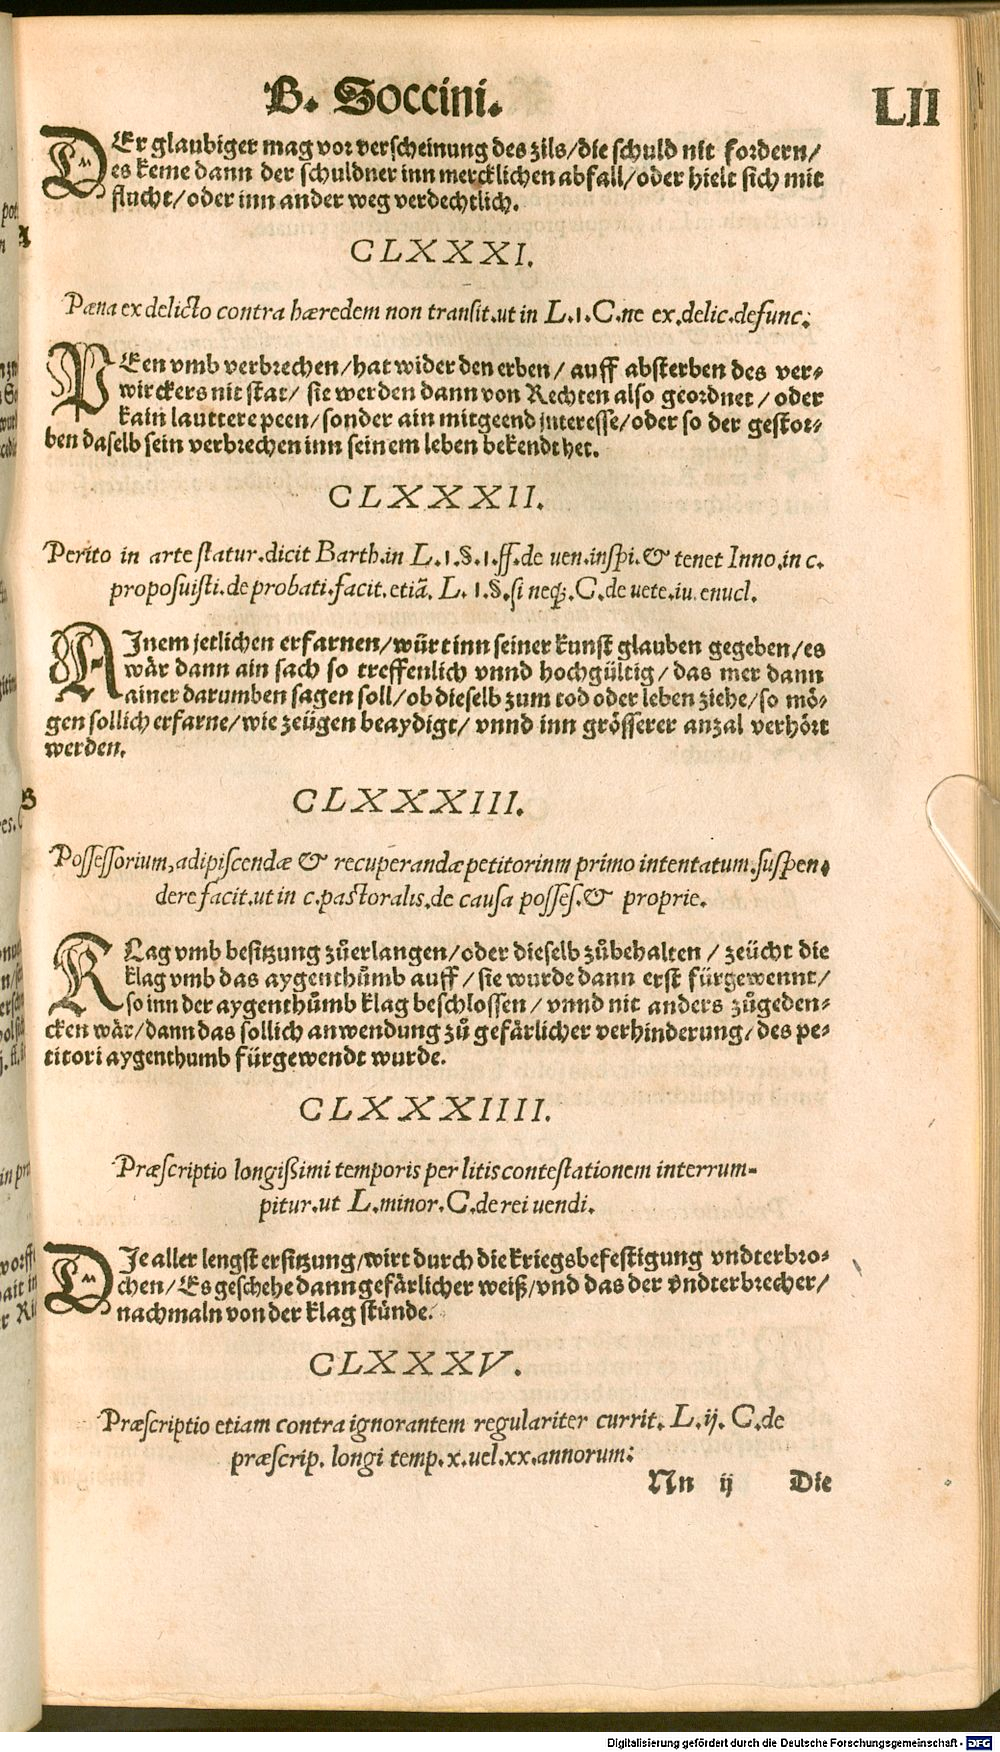 B. Soccini.
LII
DEr glaubiger mag vor verscheinung des zils/die schuld nit fordern/
es keme dann der schuldner inn mercklichen abfall/oder hielt sich mit
flucht/oder inn ander weg verdechtlich.
CLXXXI.
Pæna ex delicto contra hæredem non transit.ut in L.1.C.ne ex.delic.defunc:
PEen vmb verbrechen/hat wider den erben/ auff absterben des ver-
wirckers nit stat/ sie werden dann von Rechten also geordnet/oder
kain lauttere peen/sonder ain mitgeend jnteresse/oder so der gestor-
ben daselb sein verbrechen inn seinem leben bekendt het.
CLXXXII.
Perito in arte statur.dicit Barth.in L.1.§.1.ff.de uen.inspi.& tenet Inno.in c.
proposuisti.de probati.facit.etiã. L. 1.§.si neqȝ.C.de uete.iu.enucl.
AInem jetlichen erfarnen/würt inn seiner kunst glauben gegeben/es
wär dann ain sach so treffenlich vnnd hochgültig/das mer dann
ainer darumben sagen soll/ob dieselb zum tod oder leben ziehe/so mö-
gen sollich erfarne/wie zeügen beaydigt/ vnnd inn grösserer anzal verhört
werden.
CLXXXIII.
Possessorium,adipiscendæ & recuperandæ petitorinm primo intentatum.suspen-
dere facit.ut in c.pastoralis.de causa posses.& proprie.
KLag vmb besitzung zůerlangen/oder dieselb zůbehalten/ zeücht die
klag vmb das aygenthůmb auff/sie wurde dann erst fürgewennt/
so inn der aygenthůmb klag beschlossen/vnnd nit anders zůgeden-
cken wär/dann das sollich anwendung zů gefärlicher verhinderung/des pe-
titori aygenthumb fürgewendt wurde.
CLXXXIIII.
Præscriptio longißimi temporis per litis contestationem interrum-
pitur.ut L.minor.C.de rei uendi.
DIe aller lengst ersitzung/wirt durch die kriegsbefestigung vndterbro-
chen/Es geschehe dann gefärlicher weiß/vnd das der vndterbrecher/
nachmaln von der klag stünde.
CLXXXV.
Præscriptio etiam contra ignorantem regulariter currit. L.ij. C.de
præscrip. longi temp.x.uel.xx.annorum:
Nn ij Die
Digitalisierung gefördert durch die Deutsche Forschungsgemeinschaft - DFG